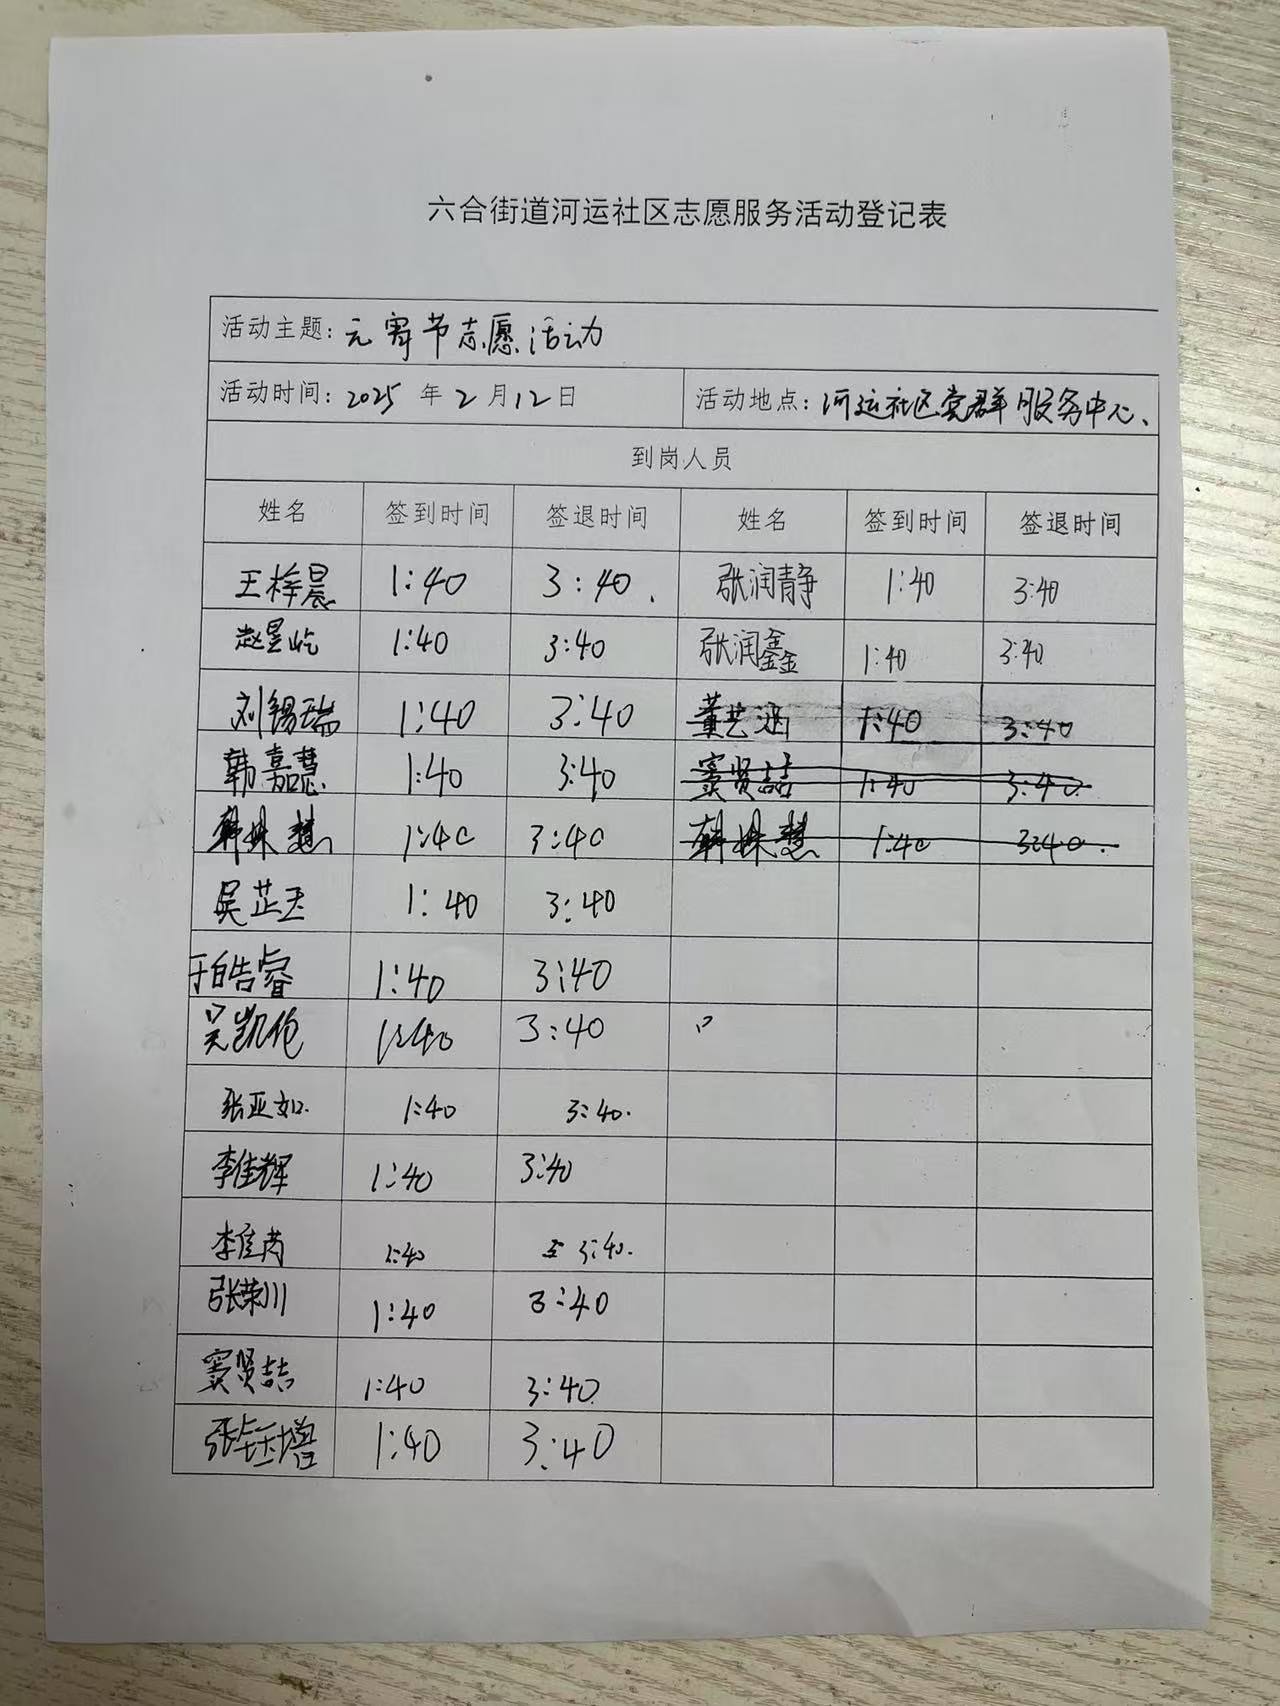 六合街道河运社区志愿服务活动登记表
活动主题：元宵节志愿活动
活动时间：2025年2月12日 活动地点：河运社区党群服务中心、
到岗人员
姓名 签到时间 签退时间 姓名 签到时间 签退时间
王梓晨 1:40 3:40. 张润静 1:40 3:40
赵昱屹 1:40 3:40 张润鑫 1:40 3:40
刘锡瑞 1:40 3:40 董艺涵 1:40 3:40
韩嘉慧 1:40 3:40 窦贤喆 1:40 3:40.
韩姝慧 1:40 3:40 韩姝慧 1:40 3:40.
吴芷玉 1:40 3:40
于皓睿 1:40 3:40
吴凯伦 1:40 3:40
张亚如. 1:40 3:40.
李佳辉 1:40 3:40
李佳芮 1:40 3:40.
张荣川 1:40 3:40
窦贤喆 1:40 3:40
张钰增 1:40 3:40